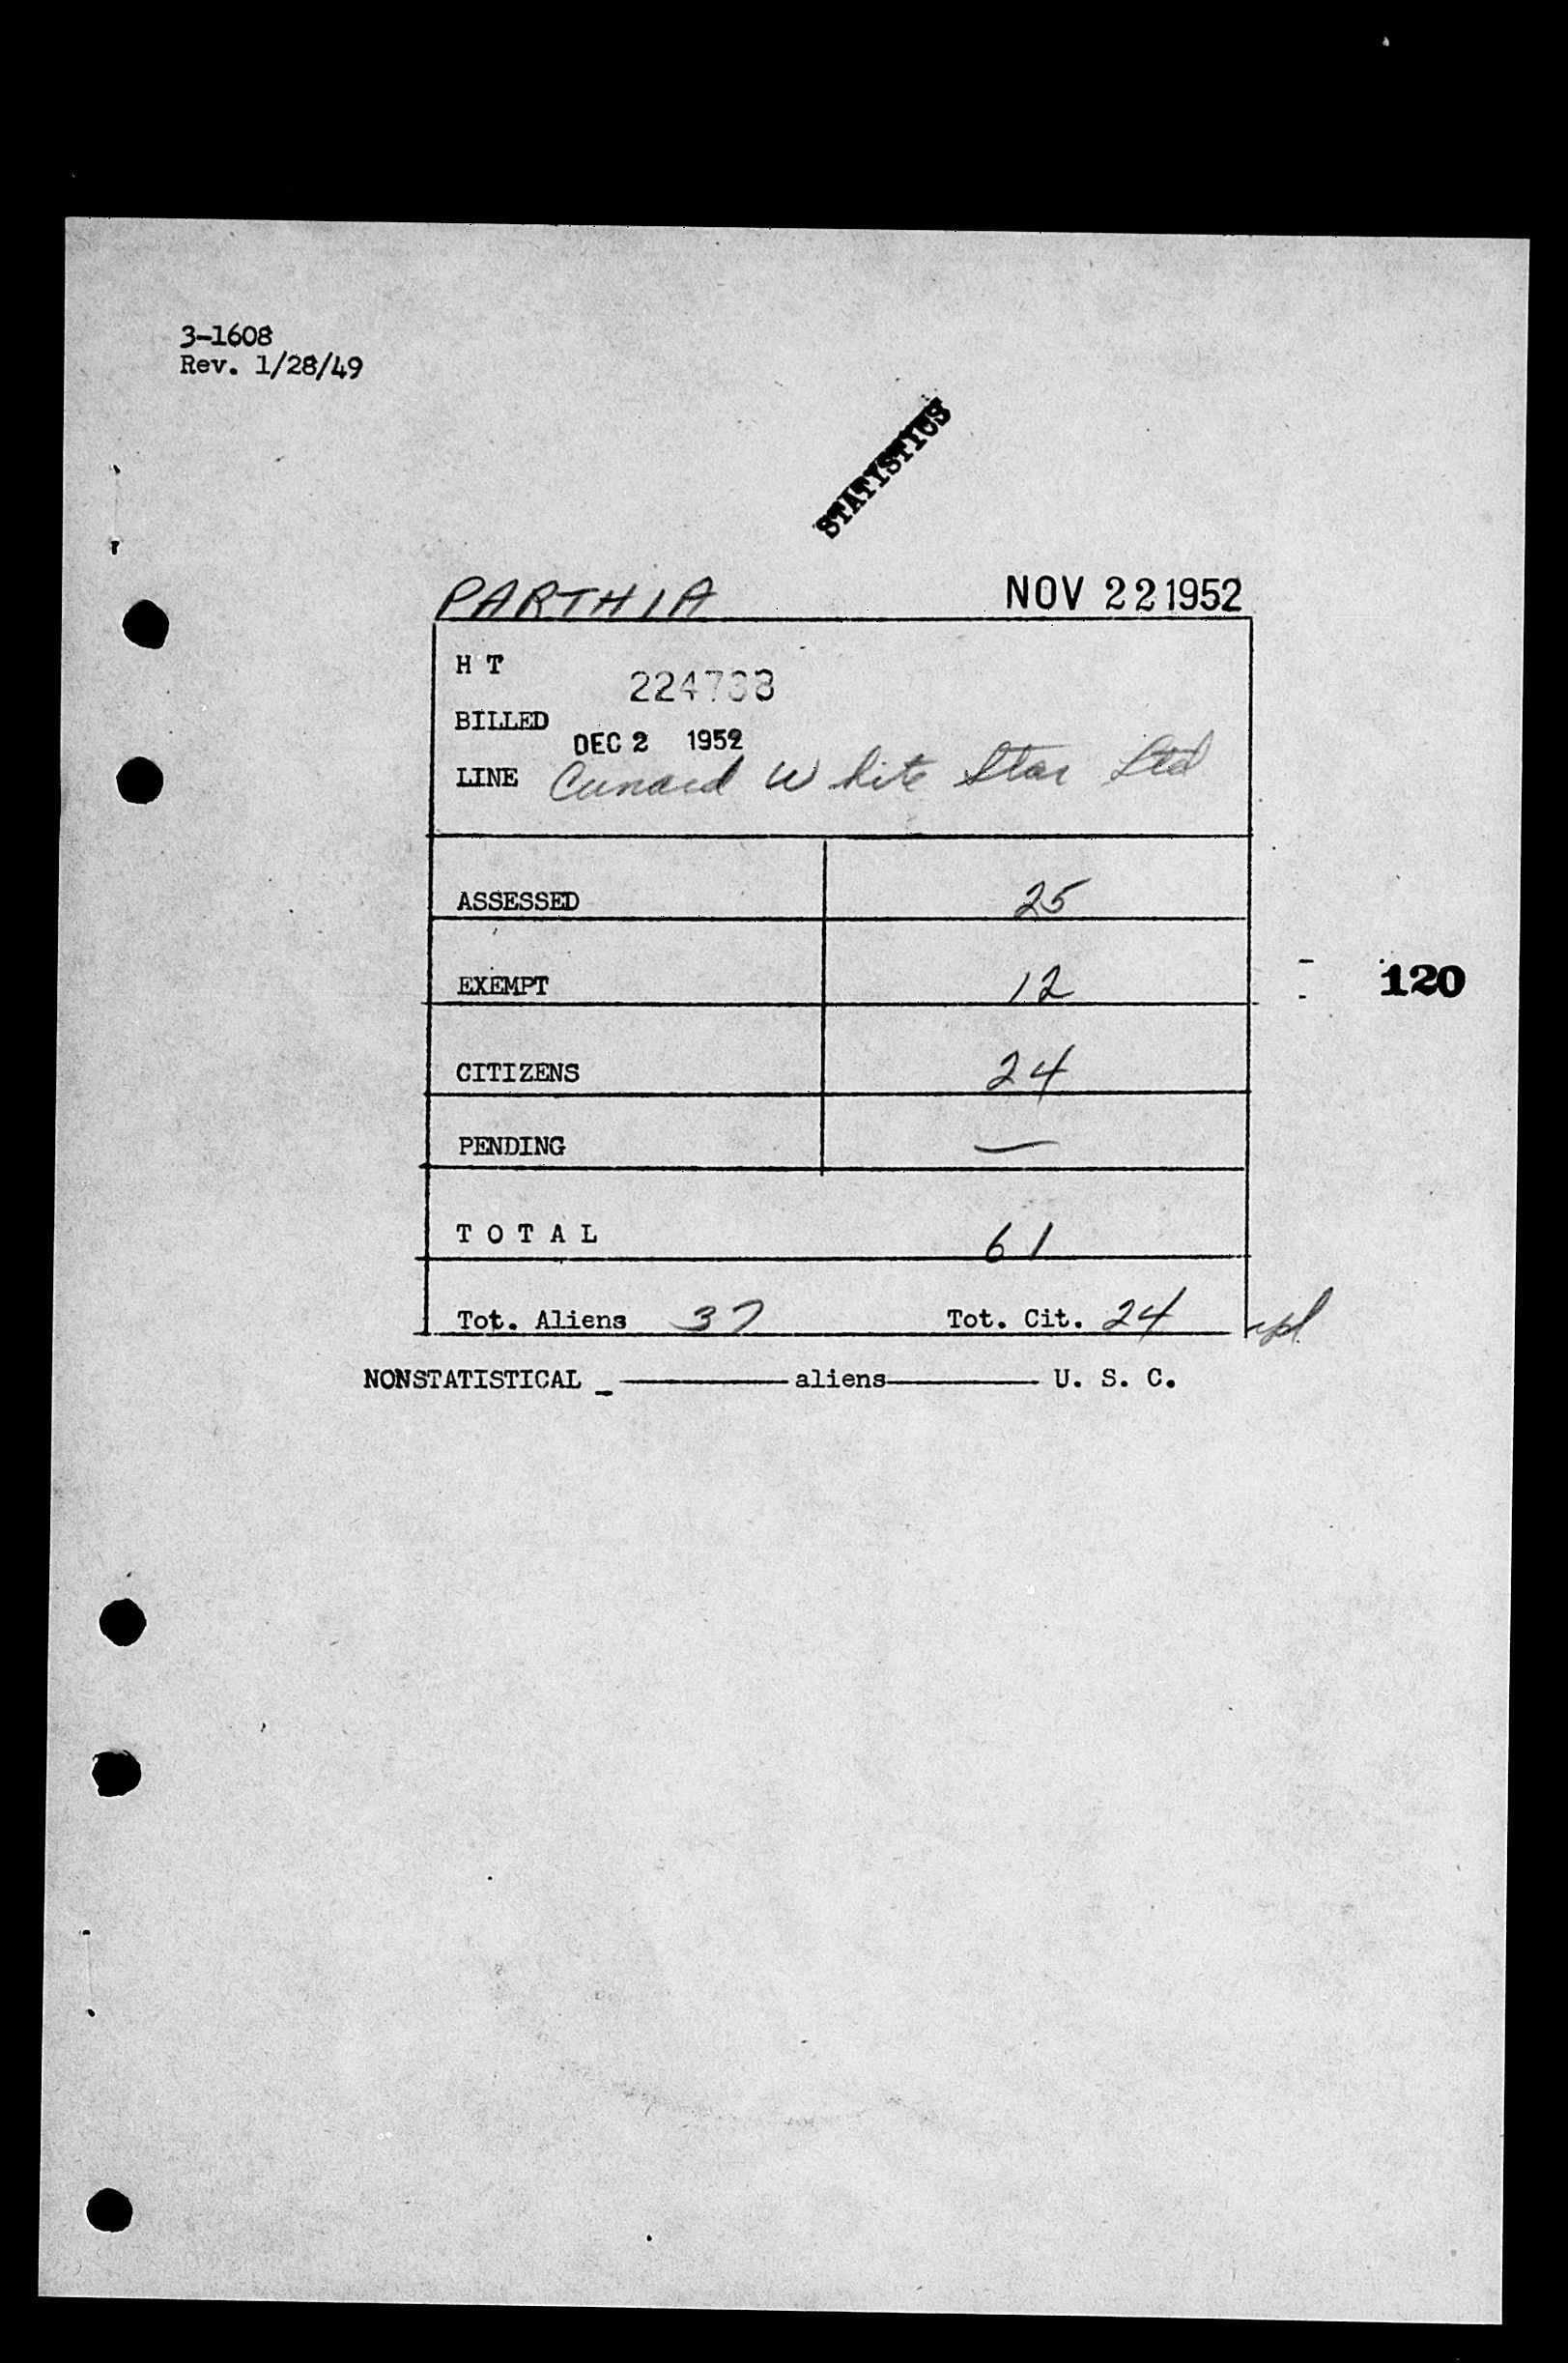 3-1608
Rev. 1/28/49
STATISTICS
PARTHIA NOV 22 1952
H T
BILLED
DEC 2 1952
LINE Cunard White Star Ltd
ASSESSED 25
EXEMPT 12
120
CITIZENS 24
PENDING —
T O T A L 61
Tot. Aliens 37 Tot. Cit. 24
NONSTATISTICAL _ ————— aliens ————— U. S. C.